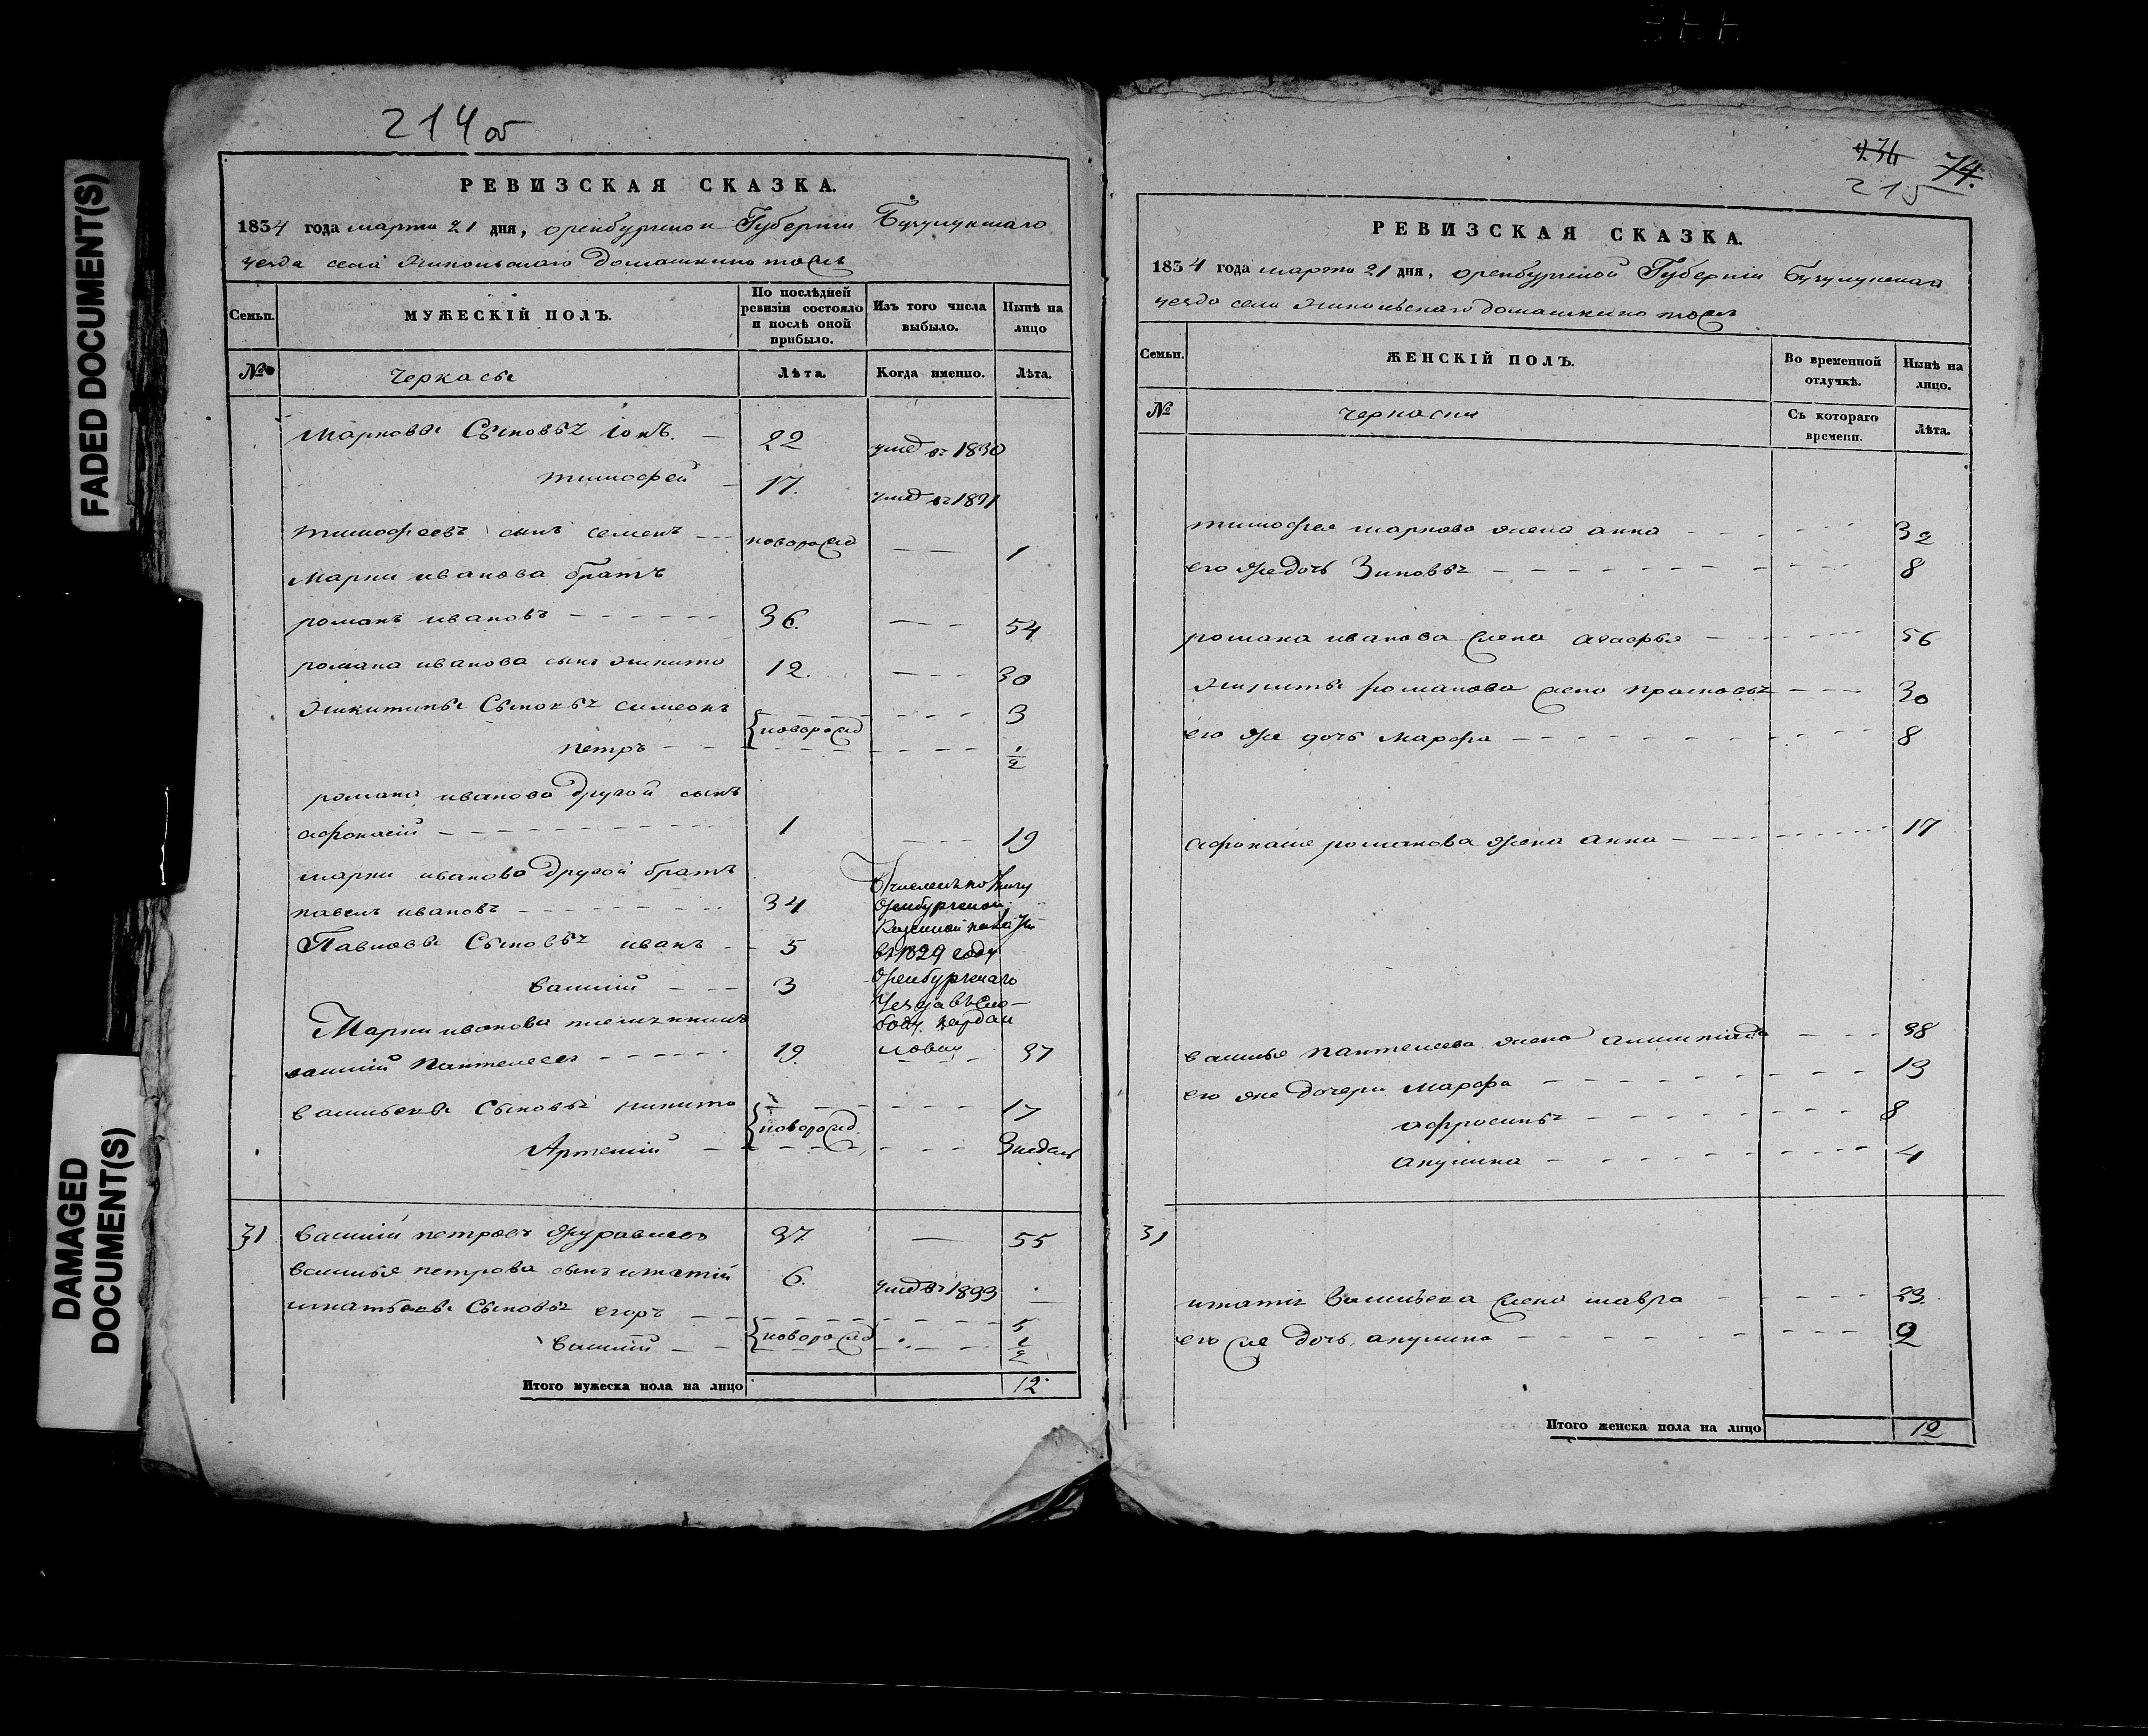 FADED DOCUMENT(S)
DAMAGED
DOCUMENT(S)
214 об
РЕВИЗСКАЯ СКАЗКА.
1834 года марта 21 дня, оренбургской Губернии Бузулукскаго
уезда села Никольскаго Домашкино тожъ
Семьи.
МУЖЕСКІЙ ПОЛЪ.
По послѣдней
ревизіи состояло
и послѣ оной
прибыло.
Изъ того числа
выбыло.
Нынѣ на
лицо
№
Черкасы
Лѣта.
Когда именно.
Лѣта.
Марковы Сыновья Іонъ. 22 умер въ 1830
тимофей 17. умер въ 1831
тимофеевъ сынъ семенъ новорожд 1
Марки иванова братъ
романъ ивановъ 36. 54
романа иванова сынъ никита 12. 30
никитины Сыновья симеонъ 3
новорожд
петръ 1/2
романа иванова другой сынъ
афонасій 1 19
марки иванова другой братъ
павелъ ивановъ 34
Павловы Сыновья иванъ 5
василій 3
оренбургской
Казенной палаты
въ 1829 году
Оренбургскаго
Уезда въ сло-
боду
Марки иванова племянникъ
василій Пантелеевъ 19. 37
васильевы Сыновья никита 17
новорожд.
Артемій 3 недель
31 василій петровъ журавлев 37. 55
василья петрова сынъ игнатій 6. умер въ 1833
игнатьевы Сыновья егоръ 5
новорожд
василій 1/2
Итого мужеска пола на лицо 12
236 74.
215
РЕВИЗСКАЯ СКАЗКА.
1834 года марта 21 дня, оренбургской Губерніи Бузулукскаго
уезда села Никольскаго домашкино тожъ
Семьи.
ЖЕНСКІЙ ПОЛЪ.
Во временной
отлучкѣ.
Нынѣ на
лицо.
№
черкаски
Съ котораго
времени.
Лѣта.
тимофея маркова жена анна 32
его же дочь Зиновья 8
романа иванова жена агафья 56
никиты романова жена прасковья 30
его же дочь марфа 8
афонасія романова жена анна 17
василья пантелеева жена 38
его же дочери марфа 13
афросинья 8
акулина 4
31
игнатія васильева жена мавра 23.
его же дочь акулина 2
Итого женска пола на лицо 12